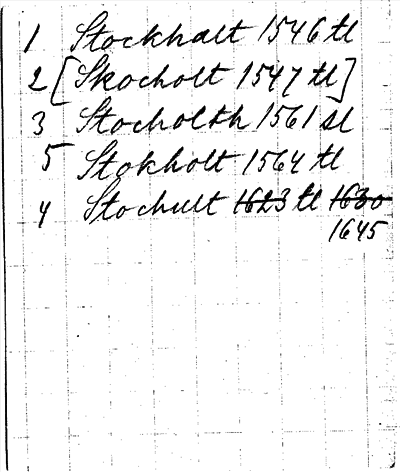 1 Stockhalt 1546 tl
2 [Skocholt 1547 tl]
3 Stocholth 1561 sl
5 Stokholt 1564 tl
4 Stochult 1623 tl 1630
1645